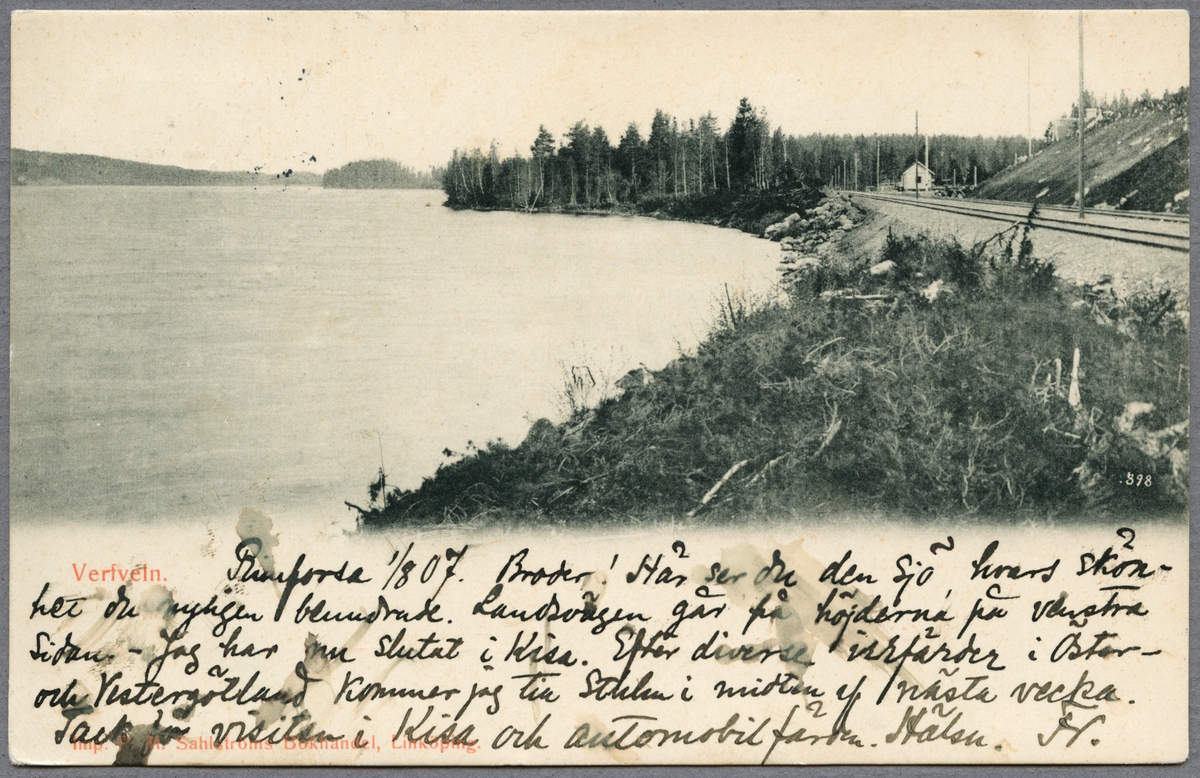 .898
Verfveln.
Rimforsa 1/8 07. Broder! Här ser du den Sjö, hvars skön-
het du nyligen beundrade. Landsvägen går på höjderna på venstra
Sidan. - Jag har nu slutat i Kisa. Efter diverse utfärder i Öster-
och Vestergötland kommer jag till Sthlm i midten af nästa vecka.
Tack för visiten i Kisa och automobilfärden. Hälsn.
Imp. Sahlströms Bokhandel, Linköping.